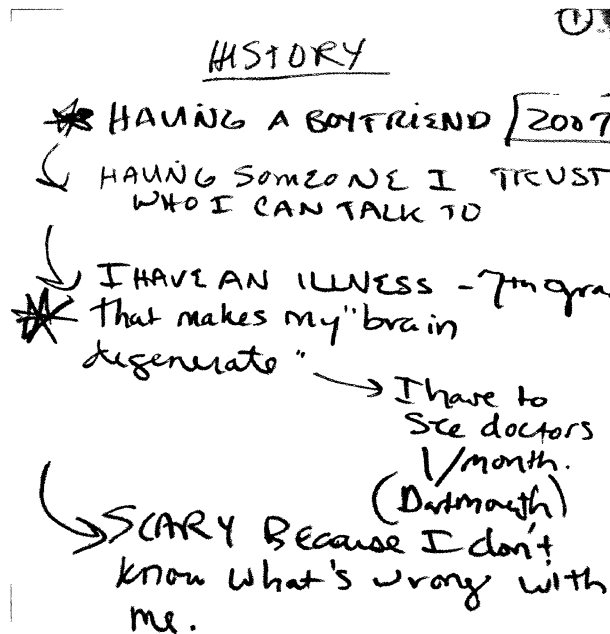 1
HISTORY
HAVING A BOYFRIEND 2007
HAVING SOMEONE I TRUST
WHO I CAN TALK TO
I HAVE AN ILLNESS - 7th gra
that makes my "brain
degenerate"
I have to
see doctors
1/month.
(Dartmouth)
SCARY Because I don't
know what's wrong with
me.